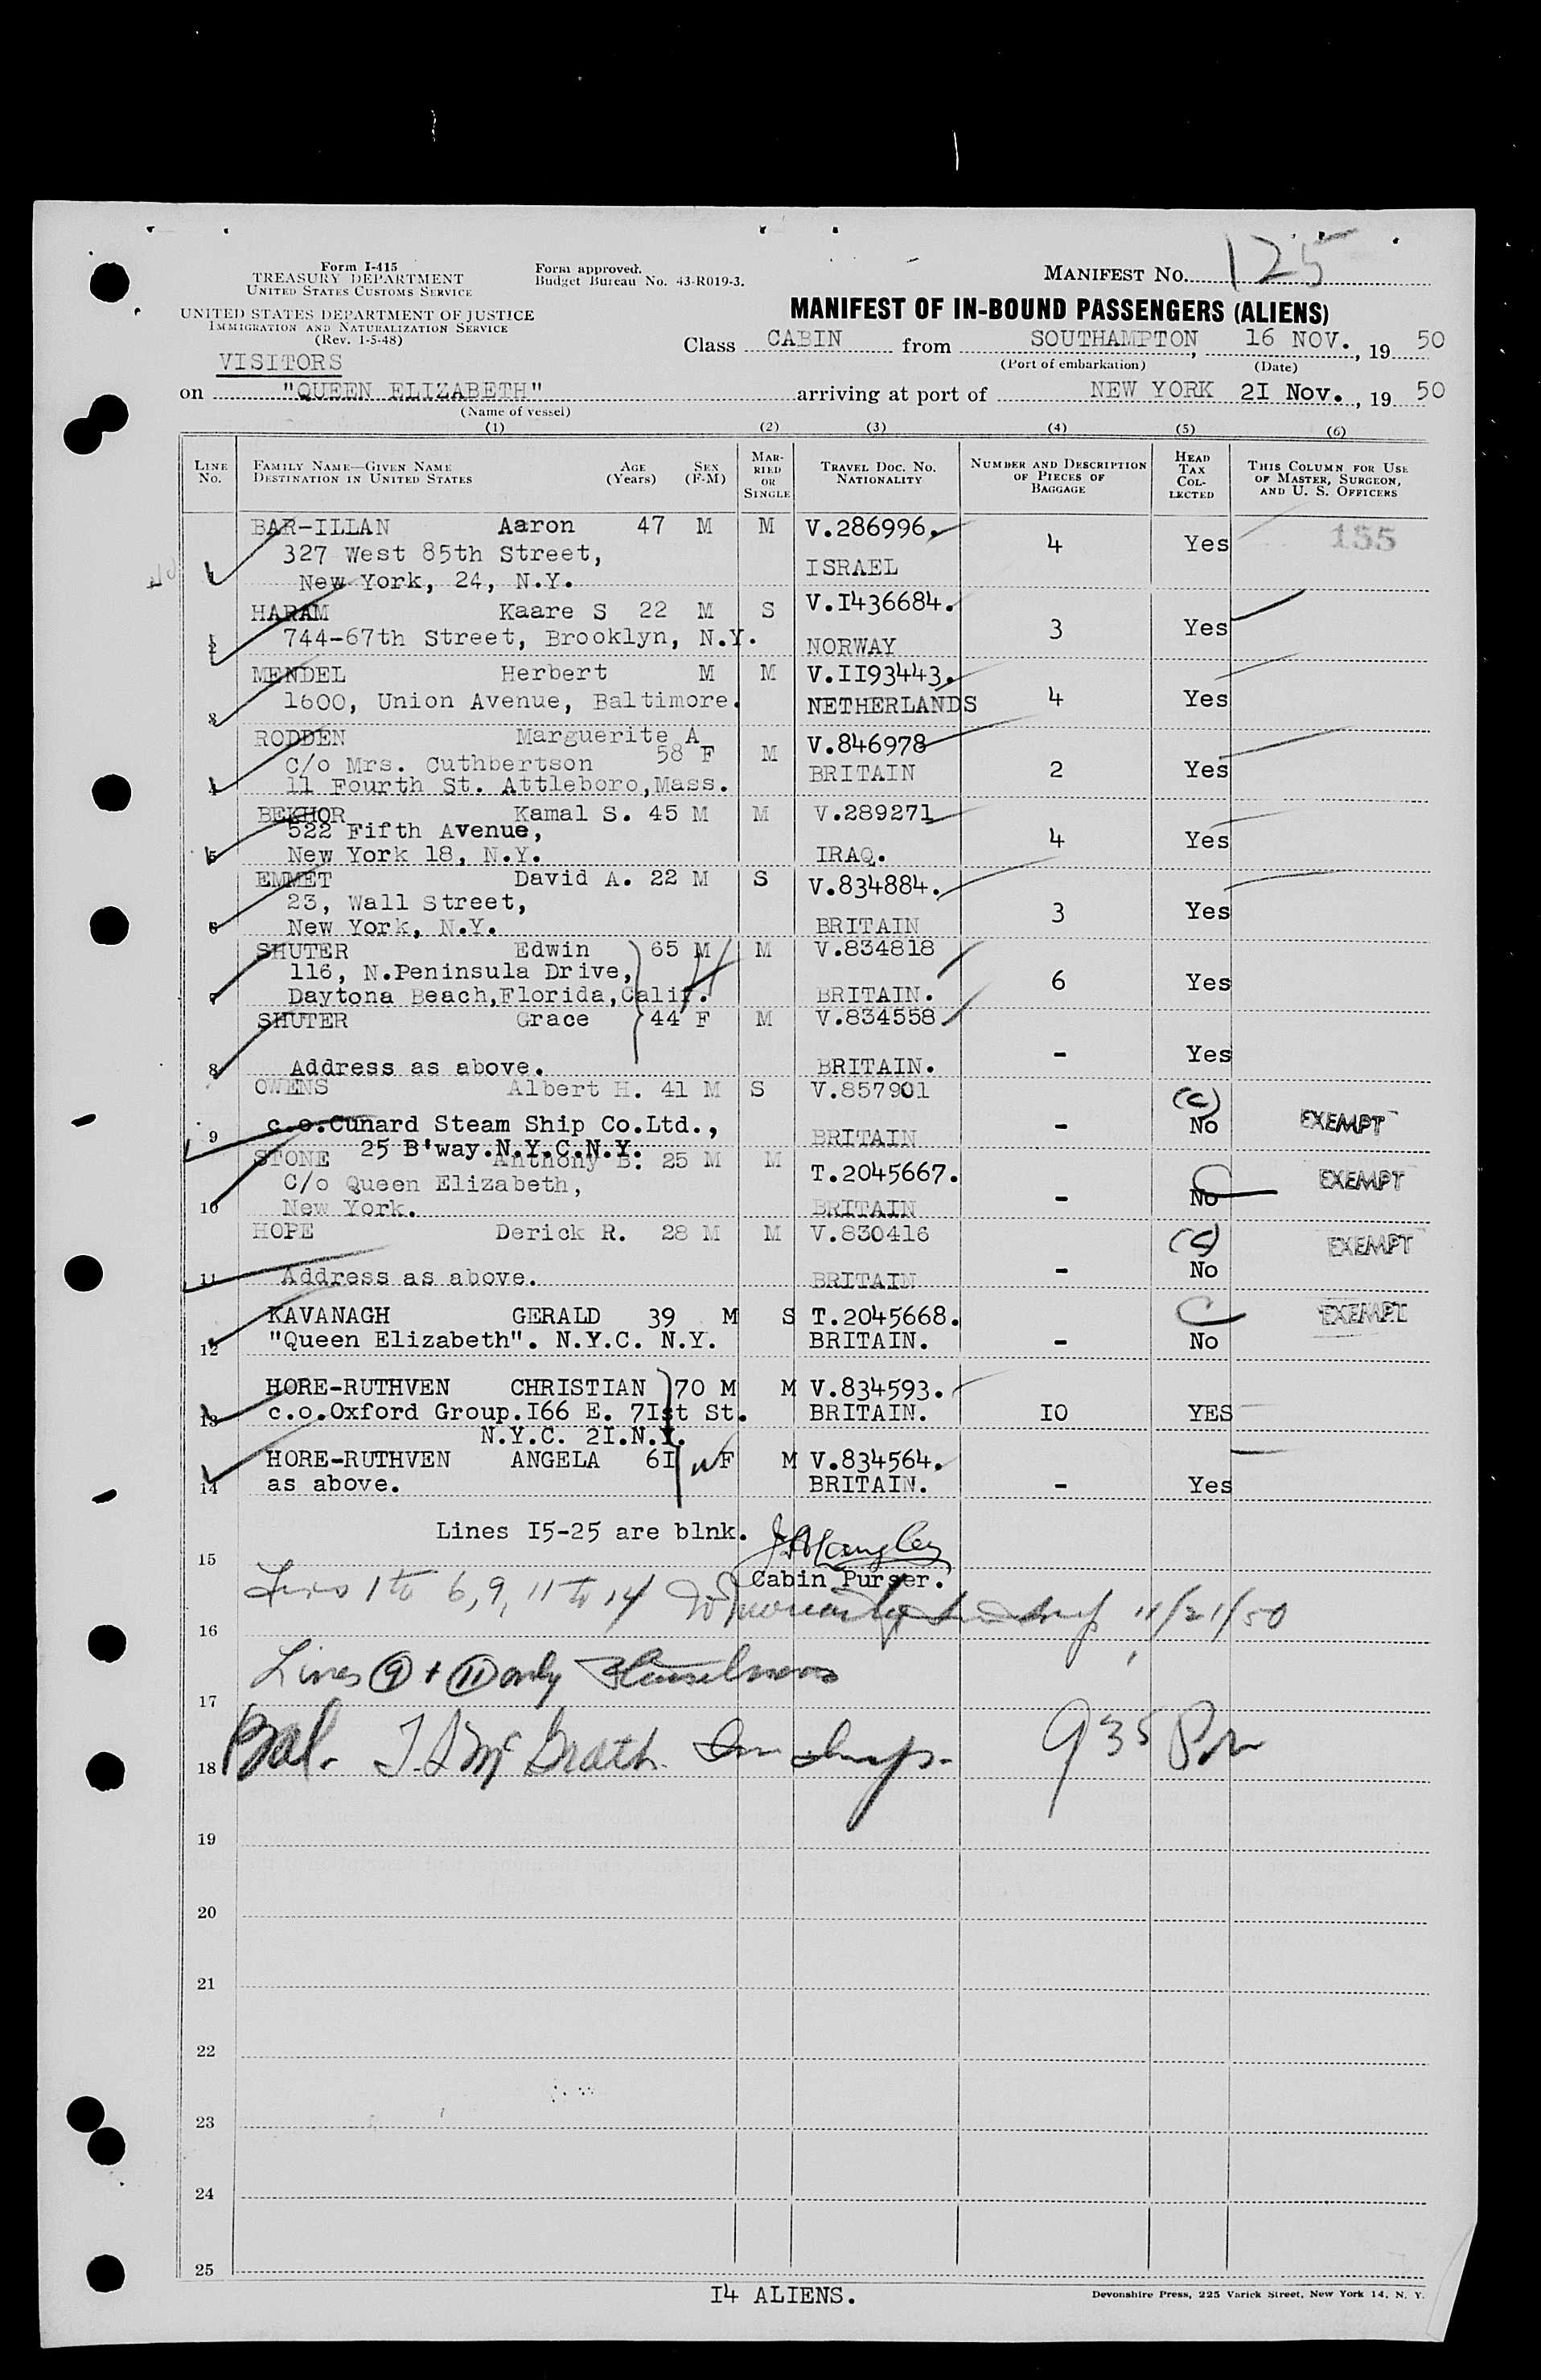 Form I-415
TREASURY DEPARTMENT
UNITED STATES CUSTOMS SERVICE
UNITED STATES DEPARTMENT OF JUSTICE
IMMIGRATION AND NATURALIZATION SERVICE
(Rev. 1-5-48)
Form approved.
Budget Bureau No. 43-R019-3.
MANIFEST NO. 125
MANIFEST OF IN-BOUND PASSENGERS (ALIENS)
Class CABIN from SOUTHAMPTON, 16 NOV., 19 50
(Port of embarkation) (Date)
VISITORS
on "QUEEN ELIZABETH" arriving at port of NEW YORK 2I Nov., 19 50
(Name of vessel)
(1) (2) (3) (4) (5) (6)
LINE NO. FAMILY NAME—GIVEN NAME DESTINATION IN UNITED STATES AGE (Years) SEX (F-M) MARRIED OR SINGLE TRAVEL DOC. NO. NATIONALITY NUMBER AND DESCRIPTION OF PIECES OF BAGGAGE HEAD TAX COLLECTED THIS COLUMN FOR USE OF MASTER, SURGEON, AND U. S. OFFICERS
BAR-ILLAN Aaron 47 M M V.286996. 4 Yes 155
327 West 85th Street,
1 New York, 24, N.Y. ISRAEL
HARAM Kaare S 22 M S V.I436684. 3 Yes
2 744-67th Street, Brooklyn, N.Y. NORWAY
MENDEL Herbert M M V.II93443. 4 Yes
3 1600, Union Avenue, Baltimore. NETHERLANDS
RODDEN Marguerite A 58 F M V.846978 2 Yes
C/o Mrs. Cuthbertson BRITAIN
4 11 Fourth St. Attleboro,Mass.
BEKHOR Kamal S. 45 M M V.289271 4 Yes
522 Fifth Avenue,
5 New York 18, N.Y. IRAQ.
EMMET David A. 22 M S V.834884. 3 Yes
23, Wall Street,
6 New York, N.Y. BRITAIN
SHUTER Edwin 65 M M V.834818 6 Yes
116, N.Peninsula Drive,
7 Daytona Beach,Florida,Calif. BRITAIN.
SHUTER Grace 44 F M V.834558 - Yes
8 Address as above. BRITAIN.
OWENS Albert H. 41 M S V.857901 (c)
9 c.o.Cunard Steam Ship Co.Ltd., BRITAIN - No EXEMPT
25 B'way.N.Y.C.N.Y.
STONE Anthony B. 25 M M T.2045667. C EXEMPT
C/o Queen Elizabeth, - No
10 New York. BRITAIN
HOPE Derick R. 28 M M V.830416 (c) EXEMPT
11 Address as above. BRITAIN - No
KAVANAGH GERALD 39 M S T.2045668. C EXEMPT
12 "Queen Elizabeth". N.Y.C. N.Y. BRITAIN. - No
HORE-RUTHVEN CHRISTIAN 70 M M V.834593.
13 c.o.Oxford Group.I66 E. 7Ist St. BRITAIN. IO YES
N.Y.C. 2I.N.Y.
HORE-RUTHVEN ANGELA 6I F M V.834564.
14 as above. BRITAIN. - Yes
Lines I5-25 are blnk.
15
Cabin Purser.
Lines 1 to 6, 9, 11 to 14 11/21/50
16
Lines 9 + 11 only
17
Bal. T. J. McGrath Imm Insp. 9 35 Pm
18
19
20
21
22
23
24
25
I4 ALIENS.
Devonshire Press, 225 Varick Street, New York 14, N. Y.